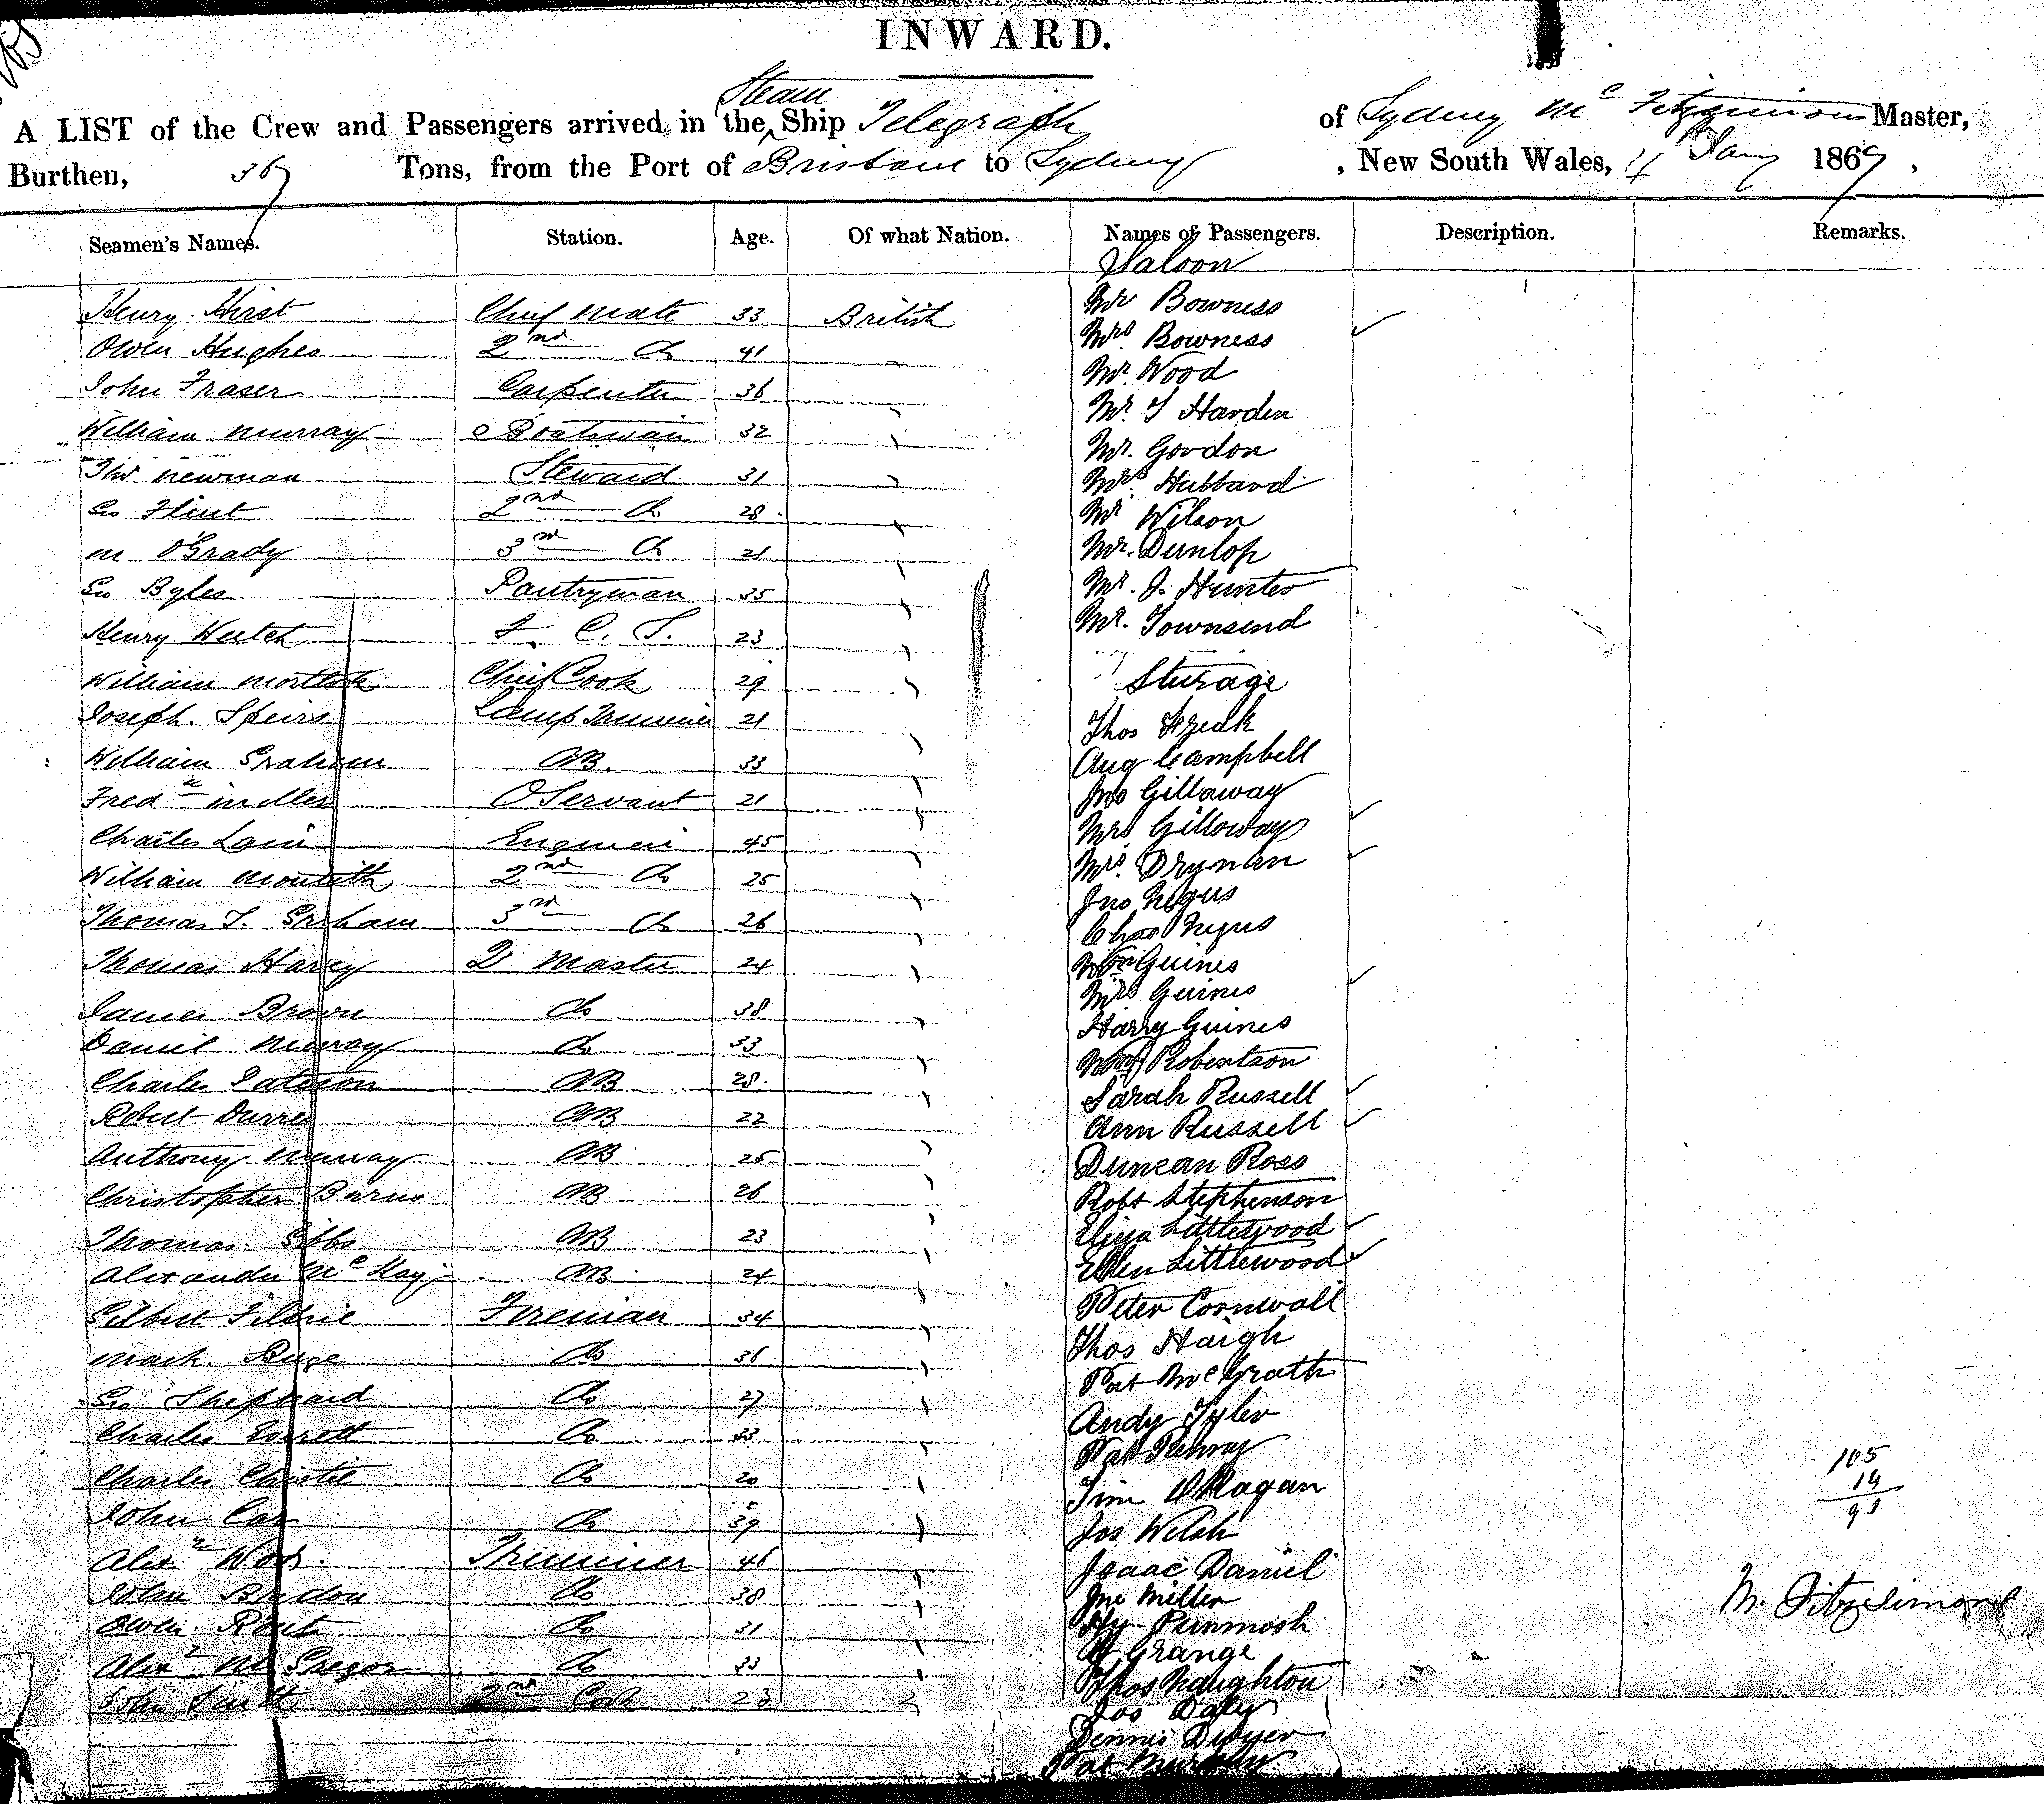 INWARD.
A LIST of the Crew and Passengers arrived in the Steam Ship Telegraph of Sydney Mc Fitzsimons Master,
Burthen, 367 Tons, from the Port of Brisbane to Sydney, New South Wales, 4 Jany 1867.
Seamen's Names. Station. Age. Of what Nation. Names of Passengers. Description. Remarks.
Saloon
Henry Hirst Chief Mate 33 British Mr Bowness
Owen Hughes 2nd Do 41 Mrs Bowness
John Fraser Carpenter 36 Mr. Wood
Mr. J Harden
William Murray Boatswain 32 Mr. Gordon
Thos Newman Steward 31 Mrs Hubbard
Geo Flint 2nd Do 28 Mr Wilson
M O'Grady 3rd Do 21 Mr. Dunlop
Geo Byles Pantryman 35 Mr. J. Hunter
Henry 23 Mr. Townsend
William Mortlock Chief Cook 29 Sturage
Joseph Speirs Lamp Trimmer 21 Thos
William Graham AB. 33 Aug Campbell
Fredk Miller O Servant 21 Jno Gillaway
Charles Engineer 45 Mrs Gilloway
William Monteith 2nd Do 25 Mrs. Drynan
Jno Negus
Thomas S. Graham 3rd Do 26 Chas Negus
Thomas Harvey Q Master 24 Wm Guines
Mrs Guines
James Brown Do 38 Harry Guines
Daniel Murray Do 33 Robertson
Charles Paterson AB 28 Sarah Russell
Robert AB 22 Ann Russell
Anthony Murray AB 25 Duncan Ross
Christopher Barns AB 26 Robt Stephenson
Thomas Gibbs AB 23 Eliza Littlewood
Alexander McKay AB 24 Ellen Littlewood
Gilbert Fireman 34 Peter Cornwall
Mark Do 36 Thos Haigh
Pat McGrath
Geo Sheppard Do 27 Andy Tyler
Charles Do 33 Pat
Charles Christie Do 20 Tim
John Do 39 Jos Welsh
Alexr Wood Trimmer 46 Isaac Daniel
John Do 38 Jno Miller
Owen Do 31 Hy
Grange
Alexr McGregor Do 33 Thos Naughton
John Smith 2nd Cook 23 Jos Daley
Dennis Dwyer
Pat Murphy
105
14
91
M. Fitzsimons